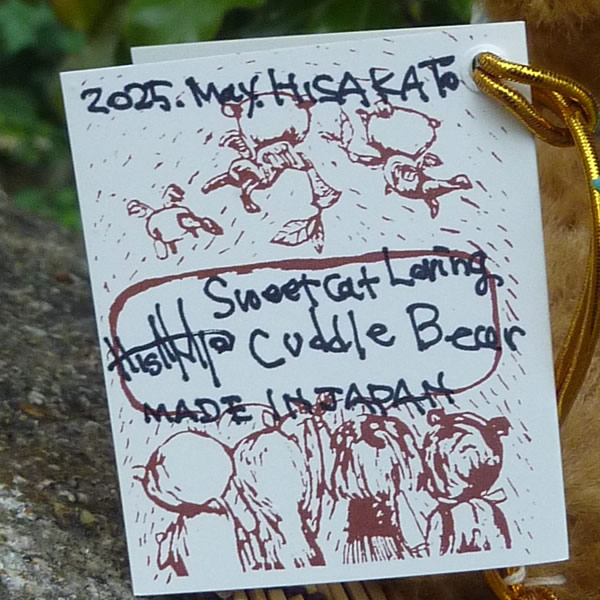 2025. May. HISA KATO
Sweet cat Loving
Cuddle Bear
MADE IN JAPAN